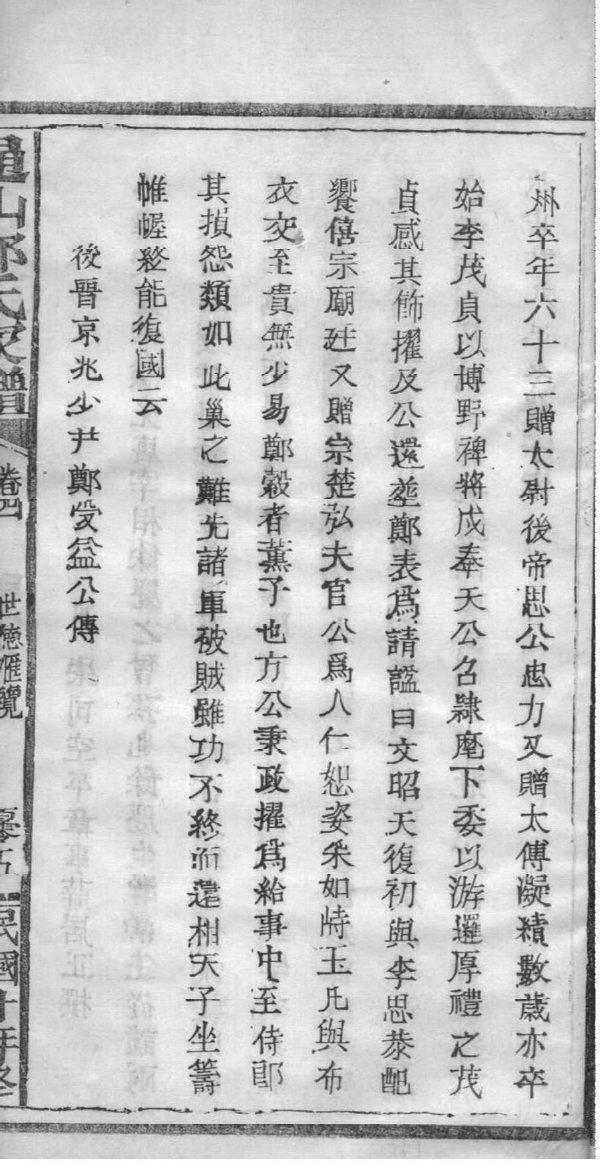 州卒年六十三贈太尉後帝思公忠力又贈太傅凝績數歲亦卒
始李茂貞以博野裨將戍奉天公召隸麾下委以游邏厚禮之茂
貞感其飾擢及公還塟鄭表爲請謚曰文昭天復初與李思恭配
饗僖宗廟廷又贈宗楚弘夫官公爲人仁恕姿采如峙玉凡與布
衣交至貴無少易鄭縠者薰子也方公秉政擢爲給事中至侍郎
其損怨類如此巢之難先諸軍破賊雖功不終而還相天子坐籌
帷幄終能復國云
後晉京兆少尹鄭受益公傳
山鄭氏家譜
卷四
世德匯覽
零五
民國十年修